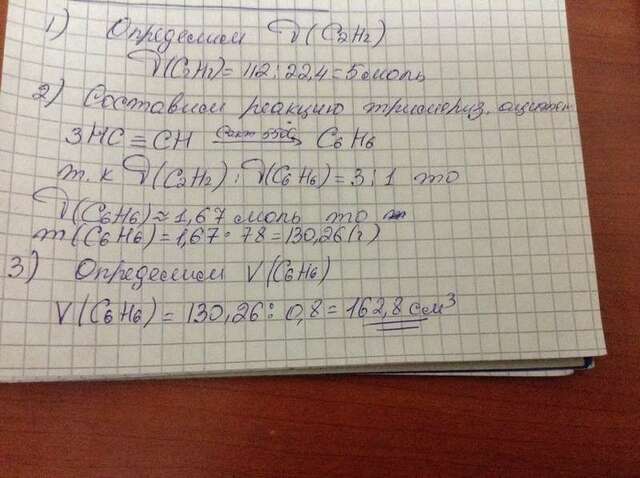 1) Определим ν(C2H2)
ν(C2H2) = 112 : 22,4 = 5 моль
2) Составим реакцию тримериз. ацетилен
3HC ≡ CH Cакт 550C→ C6H6
т. к ν(C2H2) : ν(C6H6) = 3 : 1 то
ν(C6H6) ≈ 1,67 моль то
m(C6H6) = 1,67 · 78 = 130,26 (г)
3) Определим V(C6H6)
V(C6H6) = 130,26 : 0,8 = 162,8 см³